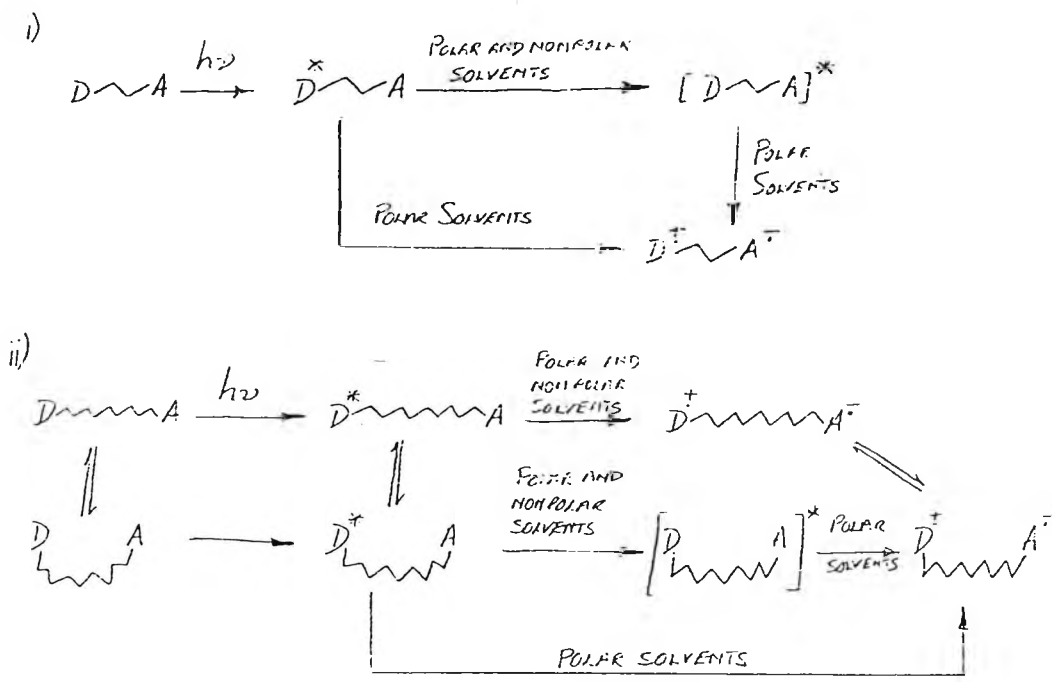 i)
D A hν D* A POLAR AND NONPOLAR
SOLVENTS
[D A]*
POLAR
SOLVENTS
POLAR SOLVENTS
D+· A-·
ii)
D A hν D* A POLAR AND
NONPOLAR
SOLVENTS
D+· A-·
D A D* A POLAR AND
NONPOLAR
SOLVENTS
[D A]* POLAR
SOLVENTS
D+· A-·
POLAR SOLVENTS